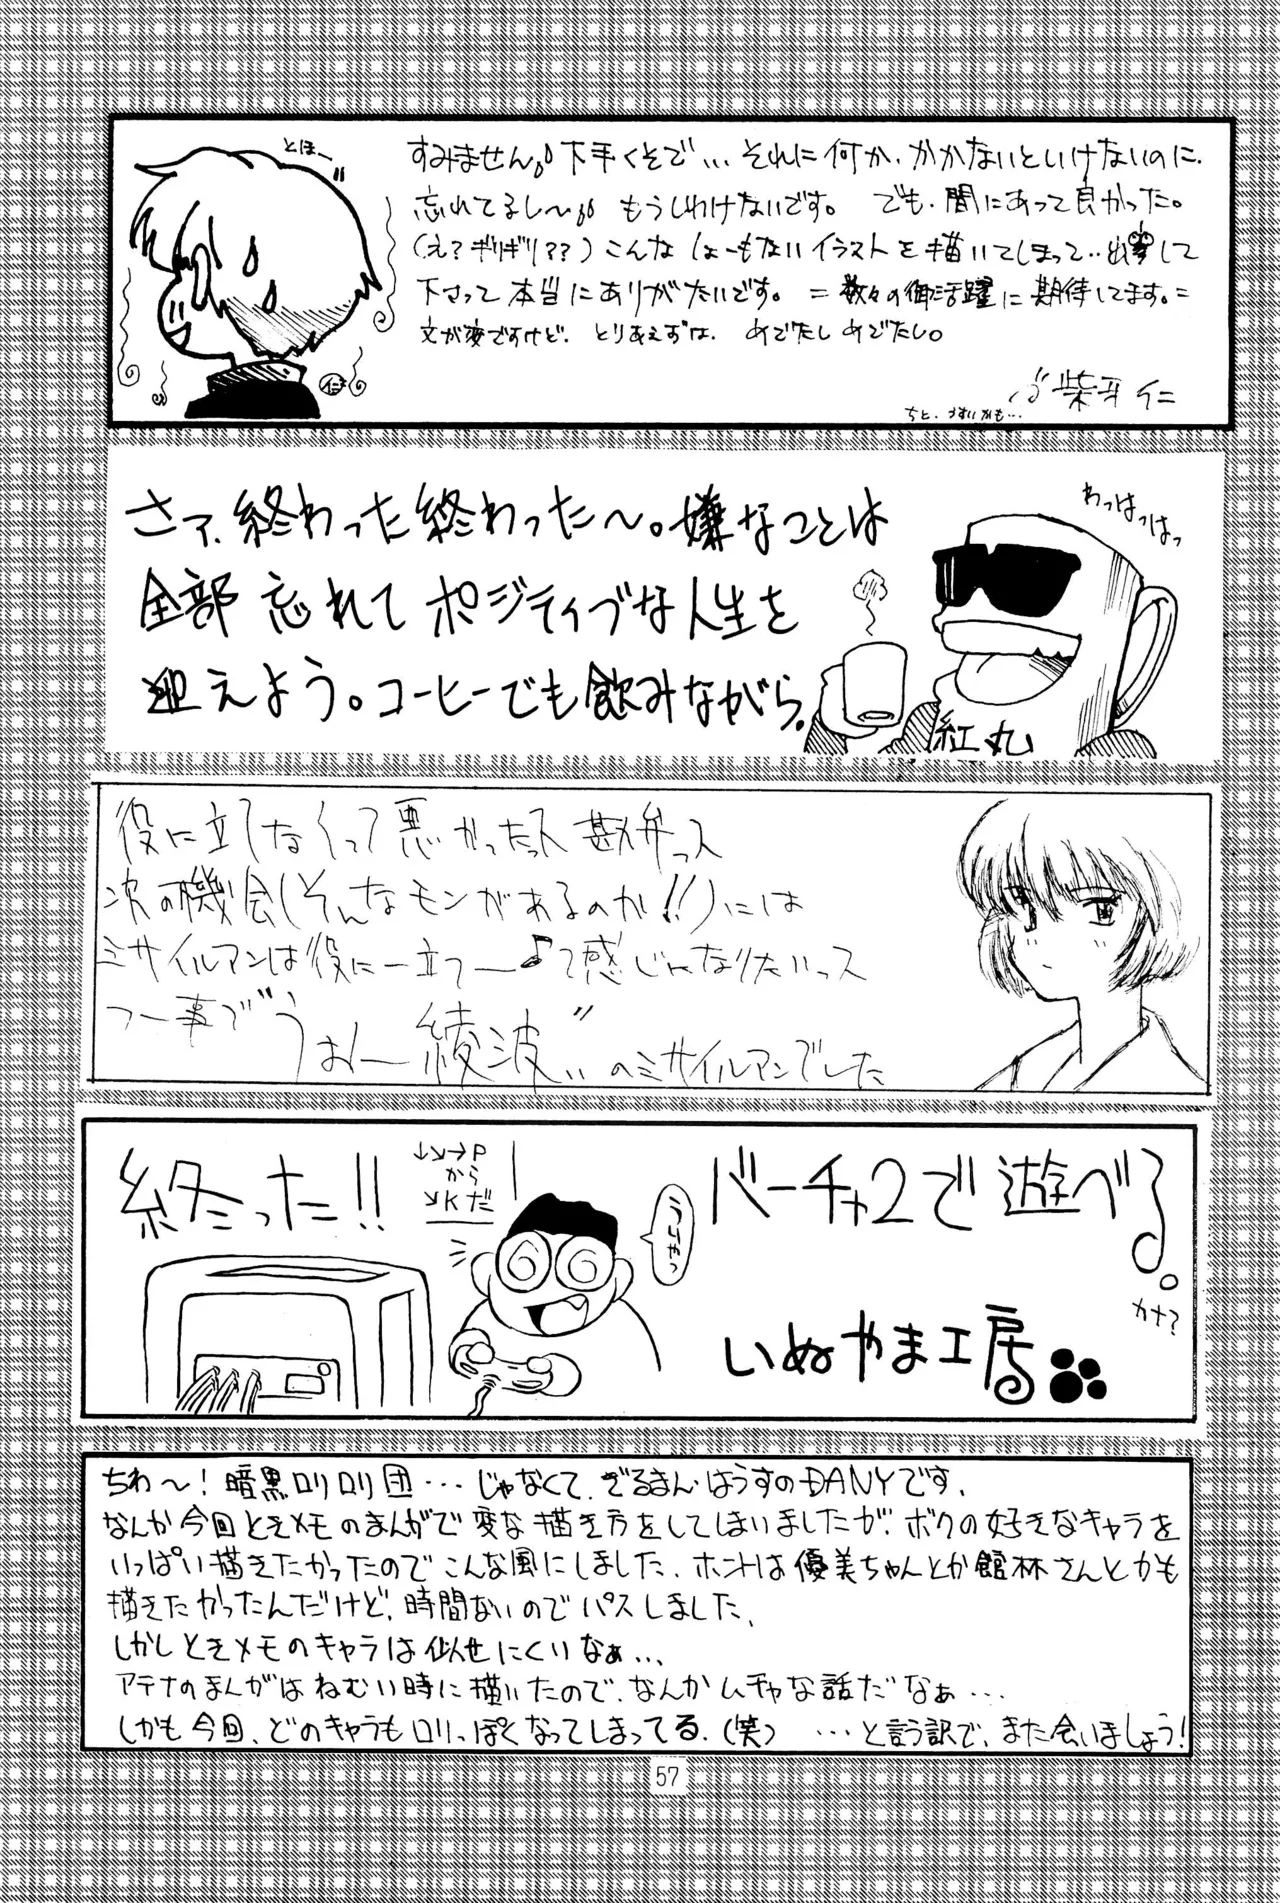 とほー
すみません 下手くそで…それに何か、かかないといけないのに、
忘れてるし〜 もうしわけないです。 でも、間にあって良かった。
(え？ギリギリ??)こんなしょーもないイラストを描いてしまって‥出して
下さって本当にありがたいです。 =数々の御活躍に期待してます。=
文が変ですけど、とりあえずは、めでたしめでたし。
柴牙 仁
ちと、うすいかも…
さァ、終わった終わった〜。嫌なことは
全部忘れてポジティブな人生を
迎えよう。コーヒーでも飲みながら。
わっはっはっ
紅丸
役に立てなくって悪かったっス 勘弁っス
次の機会(そんなモンがあるのか!!)には
ミサイルマンは役に一立つ一♪て感じになりたいっス
つー事で"うおー綾波"のミサイルマンでした
終った!!
↓↘→P
から
↘Kだ
うりゃっ
バーチャ2で遊べる。
カナ？
いぬやま工房
ちわ〜！暗黒ロリロリ団…じゃなくて、ざるまん・はうすのDANYです、
なんか今回ときメモのまんがで変な描き方をしてしまいましたが、ボクの好きなキャラを
いっぱい描きたかったのでこんな風にしました、ホントは優美ちゃんとか館林さんとかも
描きたかったんだけど、時間ないのでパスしました、
しかしときメモのキャラは似せにくいなぁ…、
アテナのまんがはねむい時に描いたので、なんかムチャな話だなぁ…
しかも今回、どのキャラもロリっぽくなってしまってる、(笑) …と言う訳で、また会いましょう！
57